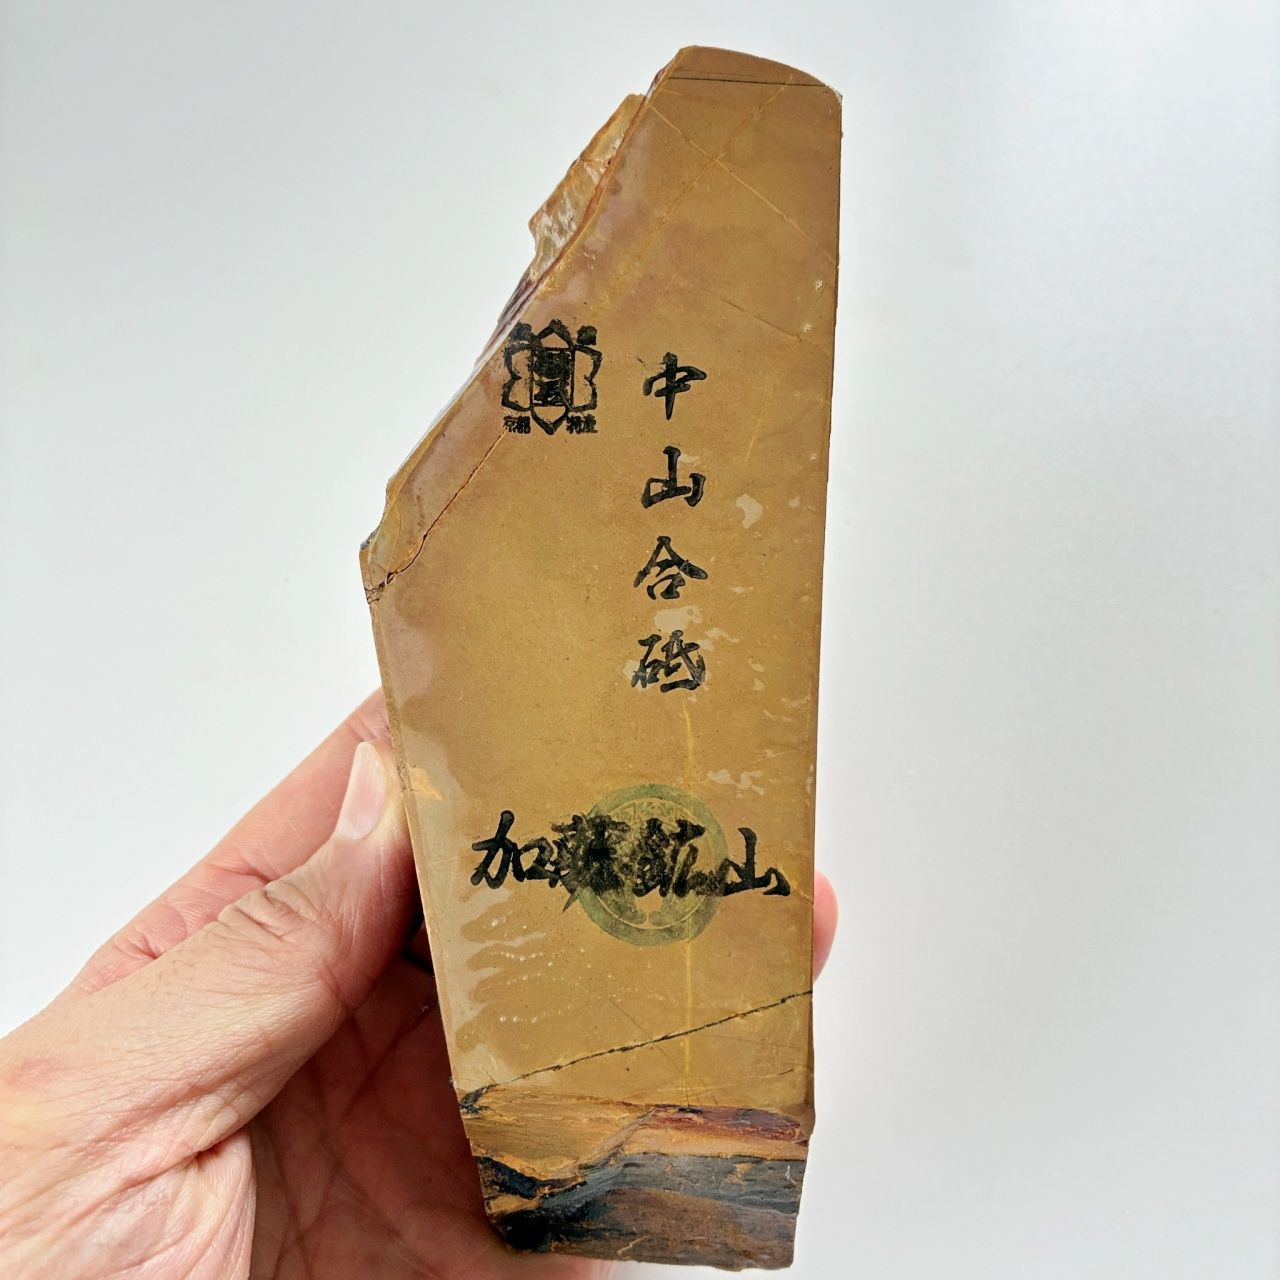 中山合砥
京都 特産
加藤鉱山